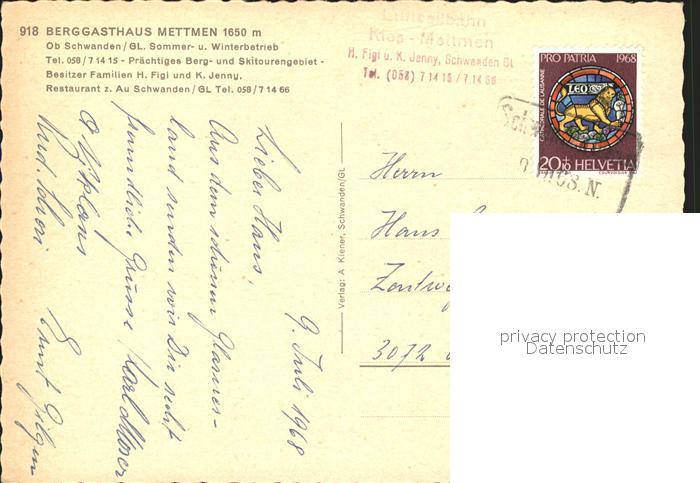 918 BERGGASTHAUS METTMEN 1650 m
Ob Schwanden/GL. Sommer- u. Winterbetrieb
Tel. 058/7 14 15 - Prächtiges Berg- und Skitourengebiet -
Besitzer Familien H. Figi und K. Jenny,
Restaurant z. Au Schwanden/GL Tel. 058/7 14 66
Kies - Mettmen
H. Figi u. K. Jenny, Schwanden GL
Tel. (058) 7 14 15 / 7 14 66
PRO PATRIA 1968
CATHÉDRALE DE LAUSANNE
LEO
20+10 HELVETIA
COURVOISIER
Verlag: A Kiener, Schwanden/GL
9. Juli 1968
Lieber Hans,
Aus dem schönen Glarner-
land senden wir Dir recht
freundliche Grüsse Karl Moser
Ernst Gilgen
Herrn
Hans
3072
privacy protection
Datenschutz